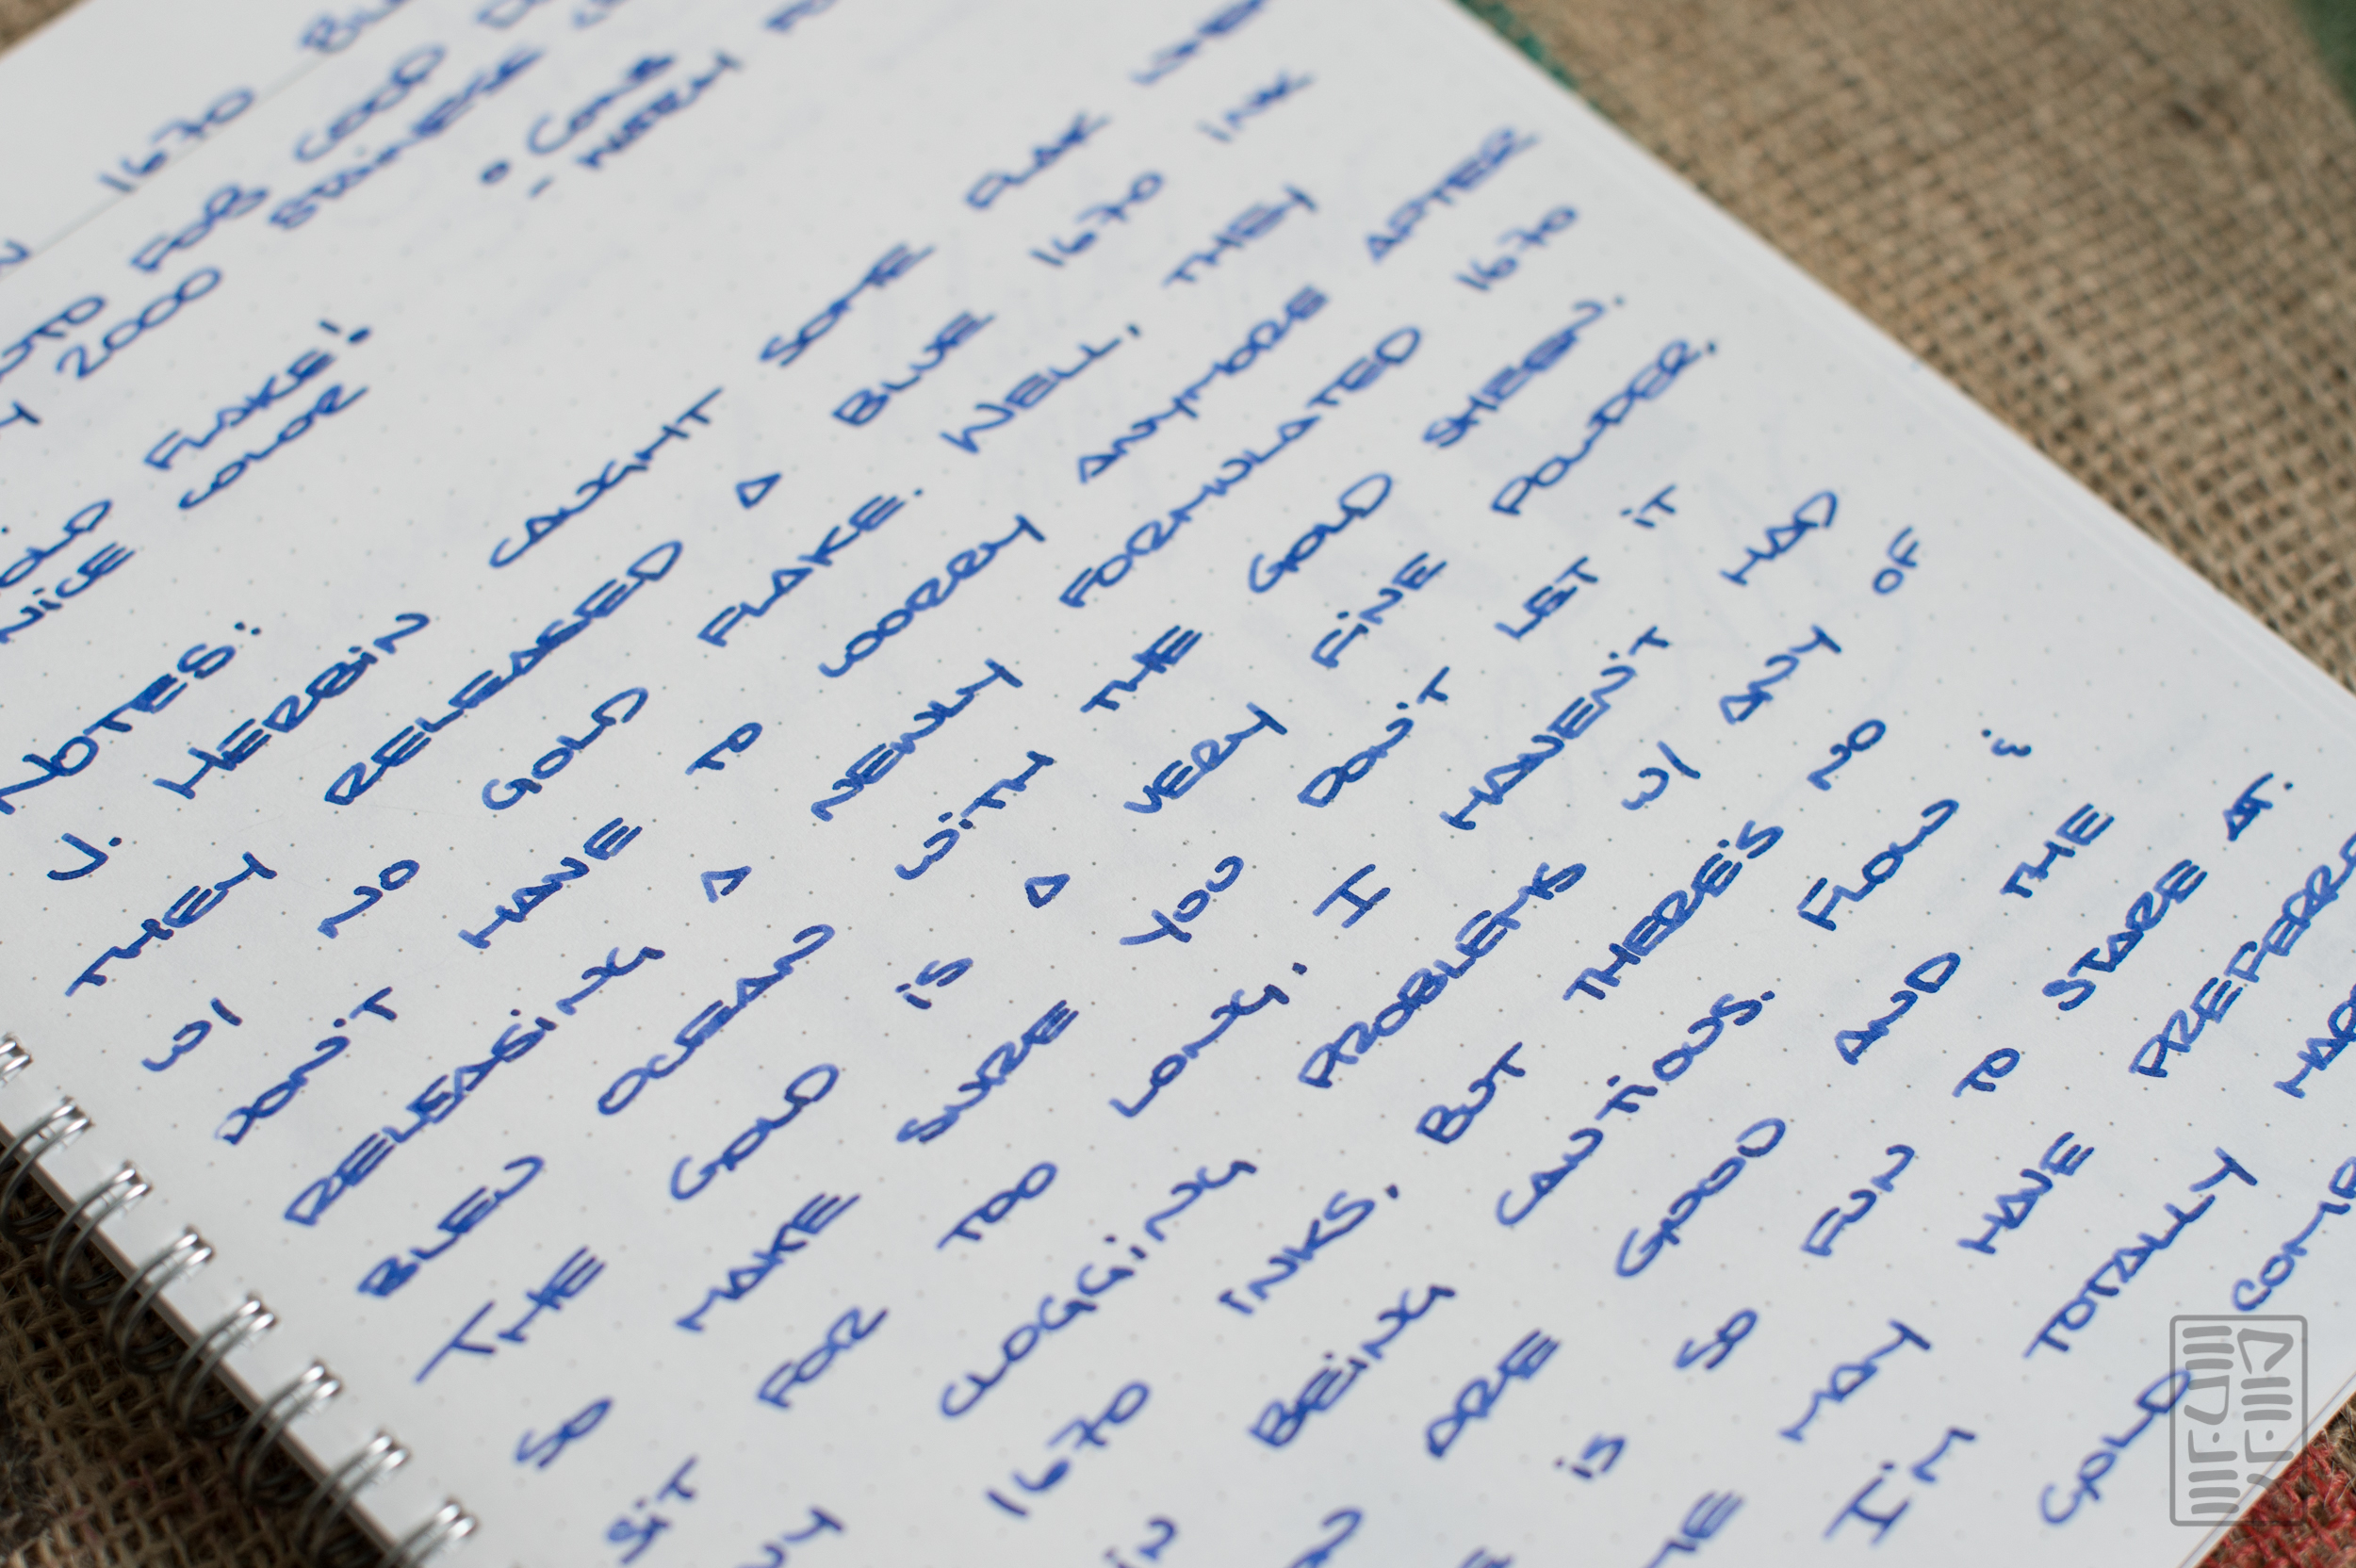 1670
FOR GOOD
2000
GOLD FLAKE!
NICE COLOR
NOTES:
J. HERBIN CAUGHT SOME FLAK WHEN
THEY RELEASED A BLUE 1670 INK
W/ NO GOLD FLAKE. WELL, THEY
DON'T HAVE TO WORRY ANYMORE AFTER
RELEASING A NEWLY FORMULATED 1670
BLEU OCEAN WITH THE GOLD SHEEN.
THE GOLD IS A VERY FINE POWDER,
SO MAKE SURE YOU DON'T LET IT
SIT FOR TOO LONG. I HAVEN'T HAD
CLOGGING PROBLEMS W/ ANY OF
1670 INKS, BUT THERE'S NO
IN BEING CAUTIOUS. FLOW &
ARE GOOD AND THE
IS SO FUN TO STARE AT.
MAY HAVE PREFERRED
I'M TOTALLY
GOLD